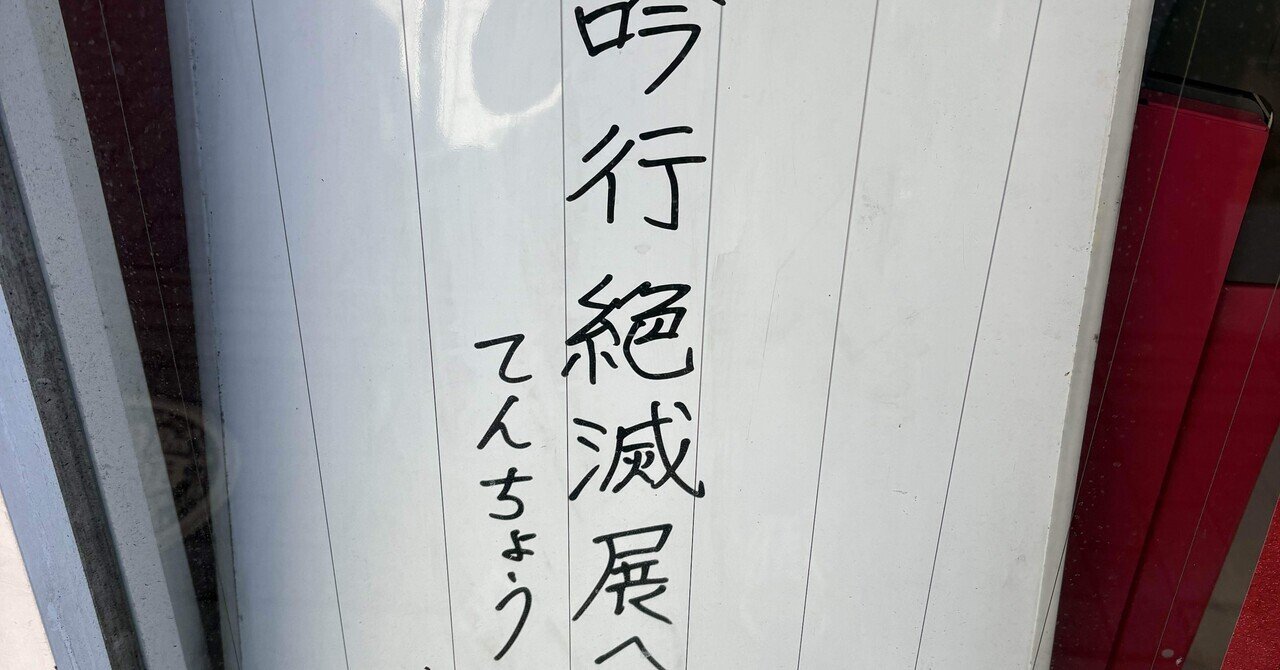 吟行絶滅展へ
てんちょう